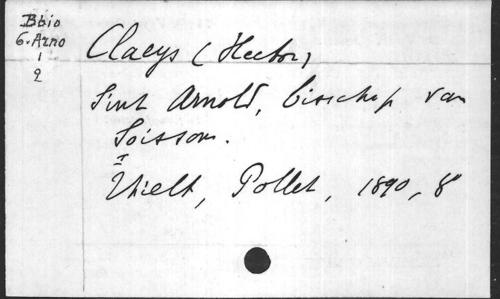 Bbio
6. Arno
1
2
Claeys (Hector)
Sint Arnold, bisschop van
Soissons.
Thielt, Pollet, 1890, 8°